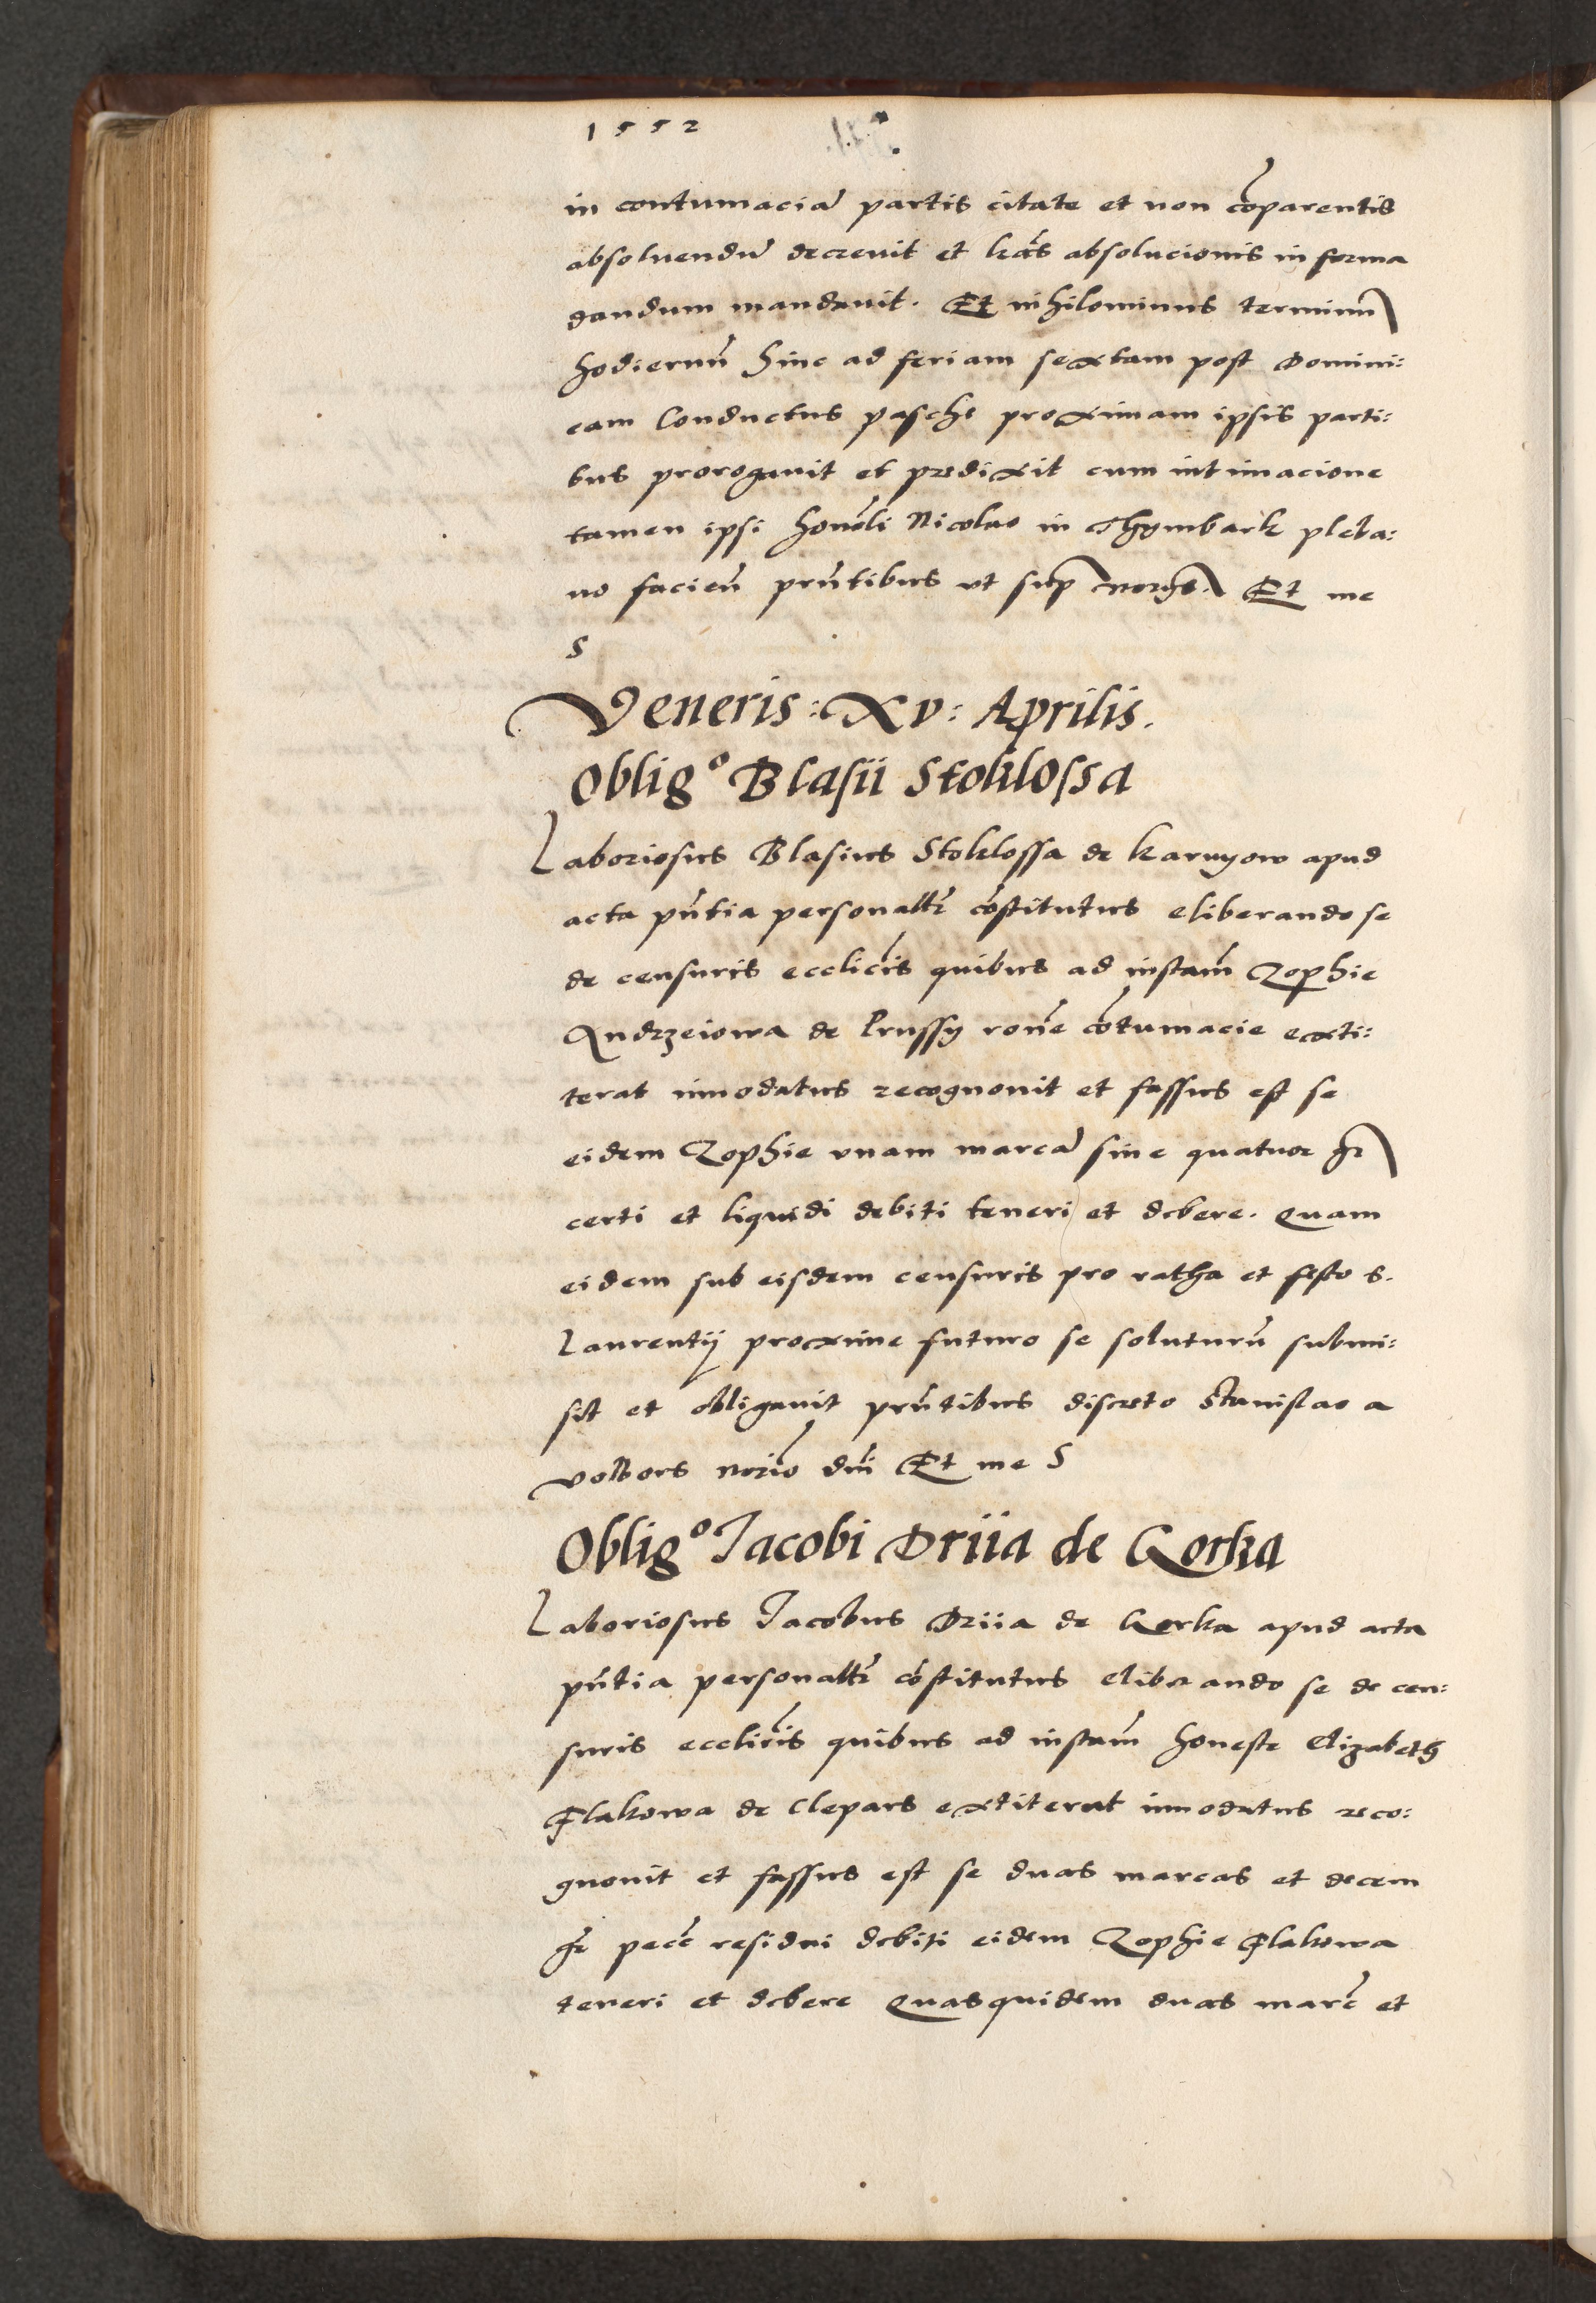 1552
in contumaciã partis citate et non cõparentis
absoluendũ decreuit et lrãs absolucionis in forma
dandum mandauit. Et nihilominus terminũ
hodiernũ hinc ad feriam sextam post Domini:
cam Conductus pasche proximam ipsis parti:
bus prorogauit et predixit cum intimacione
tamen ipsi honõli Nicolao in Thymbark pleba:
no facieñ prñtibus vt sup Et me
S
Veneris: Xv: Aprilis.
Obligo Blasii Stoklossa
Laboriosus Blasius Stoklossa de Karnyow apud
acta pñtia personaltr cõstitutus eliberando se
de censuris ecclicis quibus ad instam̃ Zophie
Andrzeiowa de Prussy rone cõtumacie exti:
terat innodatus recognouit et fassus est se
eidem Zophie vnam marcã sine quatuor gr
certi et liquidi debiti teneri et debere. Quam
eidem sub eisdem censuris pro ratha et festo S.
Laurentij proxime futuro se soluturũ submi:
sit et obligauit prñtibus discreto Stanislao a
Volbors norio dni Et me S
Obligo Jacobi Driia de Gorka
Laboriosus Jacobus Driia de Gorka apud acta
pñtia personaltr cõstitutus eliberando se de cen:
suris ecclicis quibus ad instam̃ honeste Elizabeth
Flakowa de Clepars extiterat innodatus reco:
gnouit et fassus est se duas marcas et decem
gr pecc residui debiti eidem Zophie Flakowa
teneri et debere Quasquidem duas marc et